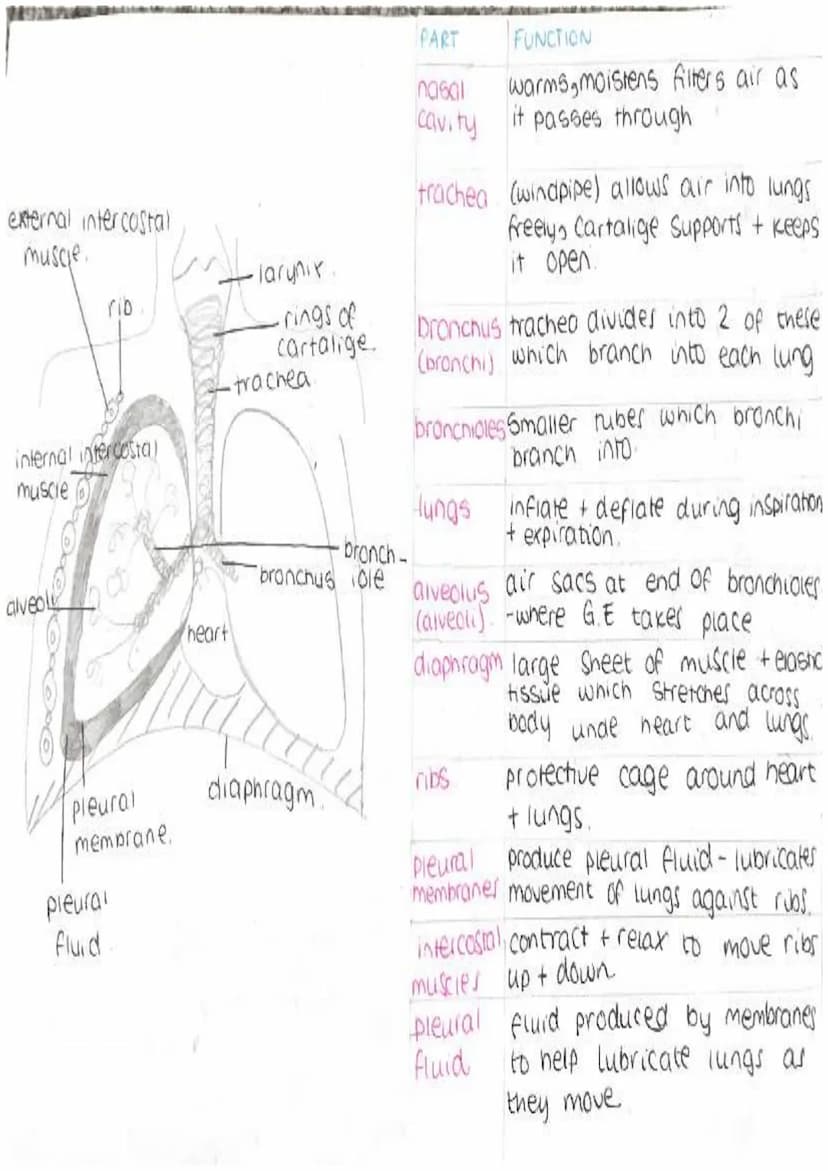 external intercostal
muscle.
rib
larynx.
rings of
cartalige.
trachea
internal intercostal
muscle
bronch-
iole
bronchus
alveoli
heart
diaphragm.
pleural
membrane.
pleural
fluid.
PART FUNCTION
nasal warms, moistens filters air as
cavity it passes through
trachea (windpipe) allows air into lungs
freely, cartalige supports + keeps
it open.
bronchus trachea divides into 2 of these
(bronchi) which branch into each lung
bronchioles smaller tubes which bronchi
branch into.
lungs inflate + deflate during inspiration
+ expiration.
alveolus air sacs at end of bronchioles
(alveoli). -where G.E takes place
diaphragm large sheet of muscle + elastic
tissue which stretches across
body unde heart and lungs.
ribs protective cage around heart
+ lungs.
pleural produce pleural fluid - lubricates
membranes movement of lungs against ribs.
intercostal contract + relax to move ribs
muscles up + down
pleural fluid produced by membranes
fluid to help lubricate lungs as
they move